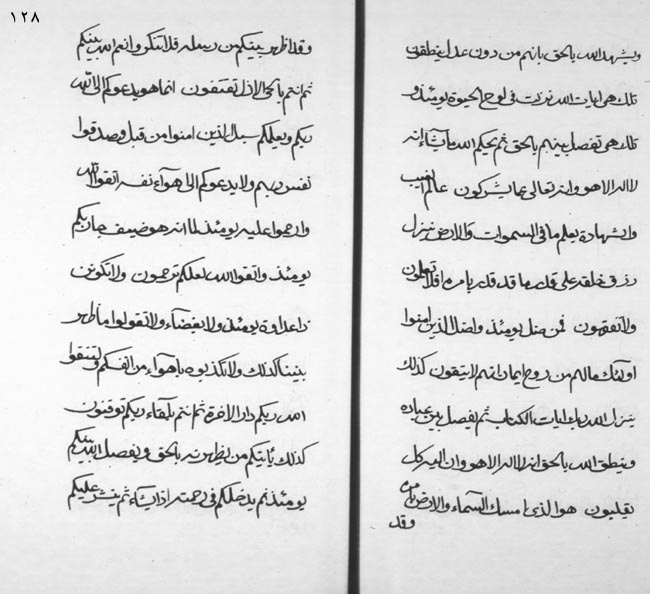 ١٢٨
ويشهد الله بالحق بانهم من دون عدل ينطقون
تلك هي ايات الله نزلت في لوح الحيوة يومئذ و
تلك هي تفصل بينهم بالحق ثم يحكم الله ما يشاء انه
لا اله الا هو وانه تعالى عما يشركون عالم الغيب
والشهادة يعلم ما في السموات والارض ينزل
رزق خلقه على قدر ما قدر بامره افلا تعلمون
ولا تفقهون فمن ضل يومئذ واضل الذين امنوا
اولئك مالهم من روح ايمان انهم لا يتقون كذلك
ينزل الله ربك ايات الكتاب ثم يفصل بين عباده
وينطق الله بالحق انه لا اله الا هو وان اليه كل
يقلبون هو الذي امسك السماء والارض بامره
وقد
وقد ظهر بينكم من رسله فلا تنكروا نعم الله بينكم
ثم انتم بالحق اذا تعتفون انما هو يدعوكم الى الله
ربكم ويعلمكم سبل الذين امنوا من قبل وصدقوا
نفس ربهم ولا يدعوكم الى هواء نفسه اتقوا الله
وارحموا عليه يومئذ لما انه هو ضيف جاء بكم
يومئذ واتقوا الله لعلكم ترحمون ولا تكونن
ذا عداوة يومئذ ولا بغضاء ولا تقولوا ما ظهر
بيننا كذلك ولا تكذبوه باهواء من انفسكم ولتتقوا
الله ربكم دار الاخرة ثم انتم بلقاء ربكم توقنون
كذلك ياتيكم من يظهرنه بالحق ويفصل الله بينكم
يومئذ ثم يدخلكم في رحمته اذا يشاء ثم ينشر عليكم